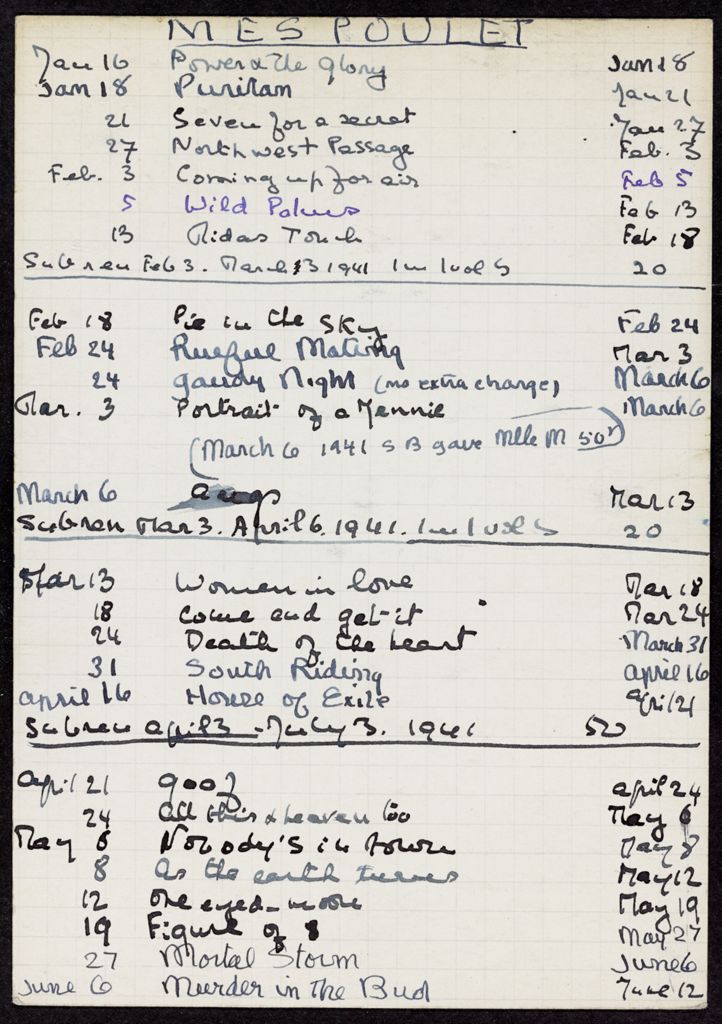 MES POULET
Jan 16 Power & the glory Jan 18
Jan 18 Puritan Jan 21
21 Seven for a secret Jan 27
27 Northwest Passage Feb. 3
Feb. 3 Coming up for air Feb 5
5 Wild Palms Feb 13
13 Midas Touch Feb 18
Subren Feb 3. March 3 1941 1m 1vol S 20
Feb 18 Pie in the Sky Feb 24
Feb 24 Rueful Mating Mar 3
24 Gaudy Night (no extra charge) March 6
Mar. 3 Portrait of a Jennie March 6
(March 6 1941 S B gave Mlle M 50f)
March 6 Mar 13
Subren Mar 3. April 6. 1941. 1m 1vol S 20
Mar 13 Women in love Mar 18
18 Come and get it Mar 24
24 Death of the heart March 31
31 South Riding april 16
april 16 House of Exile april 21
Subren april 3 - July 3. 1941 50
april 21 april 24
24 All this & heaven too May 6
May 6 Nobody's in town May 8
8 As the earth turns May 12
12 One eyed moon May 19
19 Figure of 8 May 27
27 Mortal Storm June 6
June 6 Murder in the Bud June 12